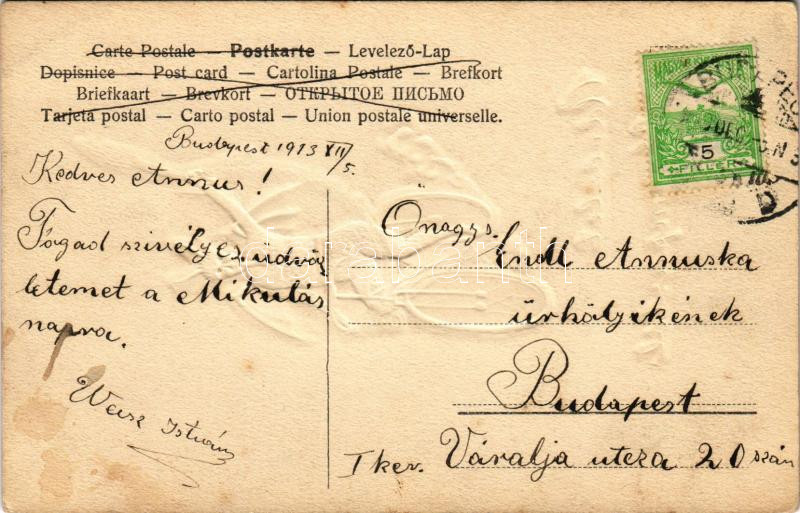 Carte Postale — Postkarte — Levelező-Lap
Dopisnice — Post card — Cartolina Postale — Brefkort
Briefkaart — Brevkort — ОТКРЫТОЕ ПИСЬМО
Tarjeta postal — Carto postal — Union postale universelle.
Budapest 1913 XII/5.
Kedves Annus!
Fogad szivélyes üdvöz
letemet a Mikulás
napra.
Weisz István
Önagys.
Endl Annuska
úrhölgyikének
Budapest
I ker. Váralja utcza 20 szám
5
FILLÉR
darabanth